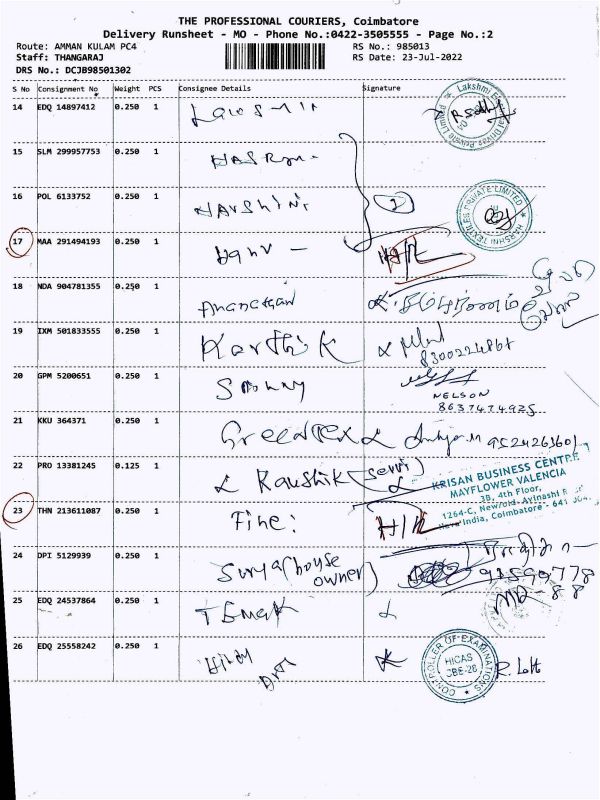 THE PROFESSIONAL COURIERS, Coimbatore
Delivery Runsheet - MO - Phone No.:0422-3505555 - Page No.:2
Route: AMMAN KULAM PC4 RS No.: 985013
Staff: THANGARAJ RS Date: 23-Jul-2022
DRS No.: DCJB98501302
S No Consignment No Weight PCS Consignee Details Signature
14 EDQ 14897412 0.250 1
15 SLM 299957753 0.250 1
16 POL 6133752 0.250 1 HARSHINI
HARSHNI TEXTILES PRIVATE LIMITED
17 MAA 291494193 0.250 1
18 NDA 904781355 0.250 1
19 IXM 501833555 0.250 1 Karthik
8300224867
20 GPM 5200651 0.250 1
NELSON
8637474925
21 KKU 364371 0.250 1 Greentex
22 PRO 13381245 0.125 1 Kaushik
KRISAN BUSINESS CENTRE
MAYFLOWER VALENCIA
3B, 4th Floor,
1264-C, New/old, Avinashi
India, Coimbatore - 641
23 THN 213611087 0.250 1 Fine:
24 DPI 5129939 0.250 1 Surya (house
owner)
25 EDQ 24537864 0.250 1
26 EDQ 25558242 0.250 1
CONTROLLER OF EXAMINATIONS
HICAS
CBE-28